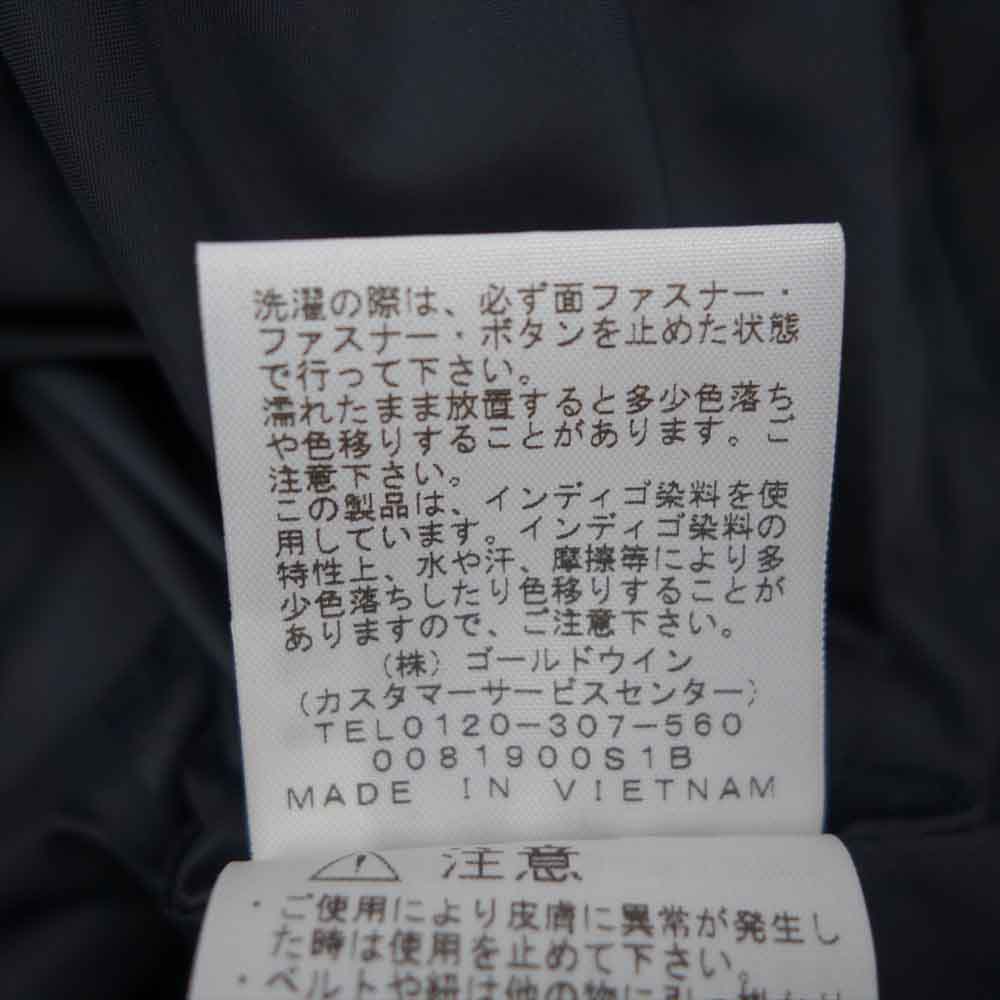 洗濯の際は、必ず面ファスナー・
ファスナー・ボタンを止めた状態
で行って下さい。
濡れたまま放置すると多少色落ち
や色移りすることがあります。ご
注意下さい。
この製品は、インディゴ染料を使
用しています。インディゴ染料の
特性上、水や汗、摩擦等により多
少色落ちしたり色移りすることが
ありますので、ご注意下さい。
(株)ゴールドウイン
(カスタマーサービスセンター)
TEL0120-307-560
0081900S1B
MADE IN VIETNAM
注意
・ご使用により皮膚に異常が発生し
た時は使用を止めて下さい。
・ベルトや紐は他の物に引っ掛かり